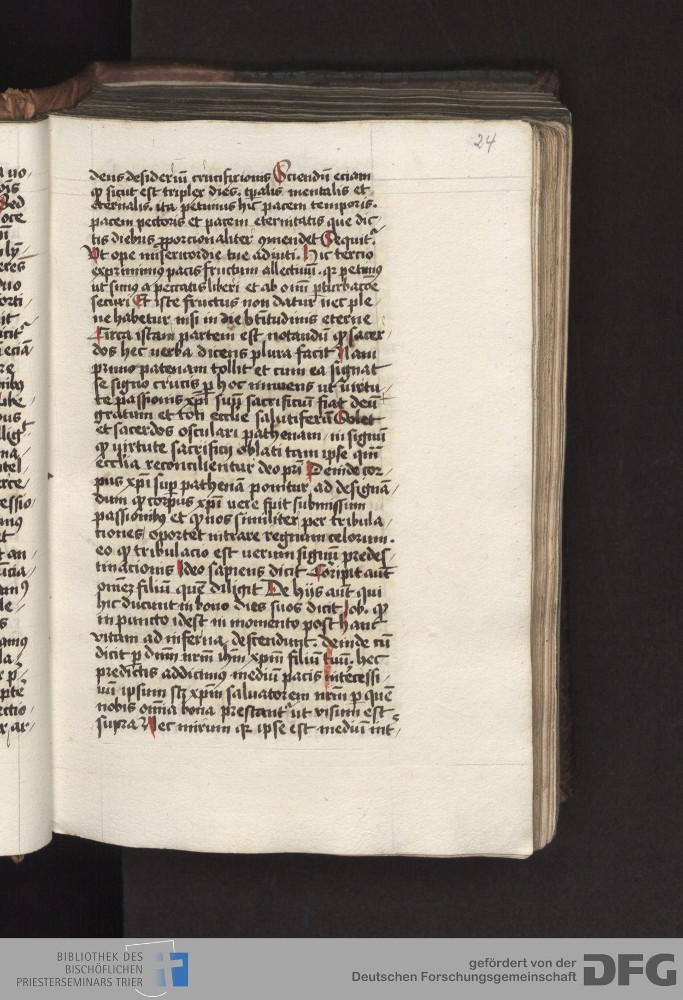 24
deus desideriū crucifixionis Sciendū eciam
ꝙ sicut est triplex dies. tp̄alis mentalis et
eternalis. ita petimus hic pacem temporis.
pacem pectoris et pacem eternitatis que dic-
tis diebus ꝓporcionaliter ꝯuendet Sequit᷑.
Ut ope misericordie tue adiuti. Hic tercio
exprimimus pacis fructum allectiuū. qꝛ petimꝰ
ut simus a peccatis liberi et ab oim̄ ꝑturbac̄oe
securi Et iste fructus non datur nec ple-
ne habetur nisi in die bt̄itudinis eterne
Circa istam partem est notandū ꝙ sacer-
dos hec verba dicens plura facit Nam
primo patenam tollit et cum ea signat
se signo crucis ꝑ hoc innuens ut v̓irtu-
te passionis xp̄i sup̄ sacrificiū fiat deū
gratum et toti ecclie salutiferū Solet
et sacerdos osculari pathenam in signū
ꝙ virtute sacrificij oblati tam ipse qm̄
ecclia reconcilientur deo pr̄i Deinde cor-
pus xp̄i sup̄ pathenā ponitur ad designā-
dum ꝙ corpus xp̄i vere fuit submissum
passionibꝰ et ꝙ nos similiter per tribula-
tiones oportet intrare regnum celorum.
eo ꝙ tribulacio est verum signū predes-
tinacionis Ideo sapiens dicit Corripit aūt
om̄ez filiū quē diligit De hijs aūt qui
hic ducunt in bono dies suos dicit Job. ꝙ
in puncto idest in momento post hanc
vitam ad inferna descendunt. deinde cū
dicit ꝑ dnm̄ nr̄m ih̄m xp̄m filiū tuū. hec
predictis addicimus mediū pacis intercessi-
uū ipsum scꝫ xp̄m saluatorem nr̄m ꝑ quē
nobis om̄ia bona prestant᷑ ut visum est
supra Nec mirum qꝛ ipse est mediū int-
BIBLIOTHEK DES
BISCHÖFLICHEN
PRIESTERSEMINARS TRIER
gefördert von der
Deutschen Forschungsgemeinschaft
DFG